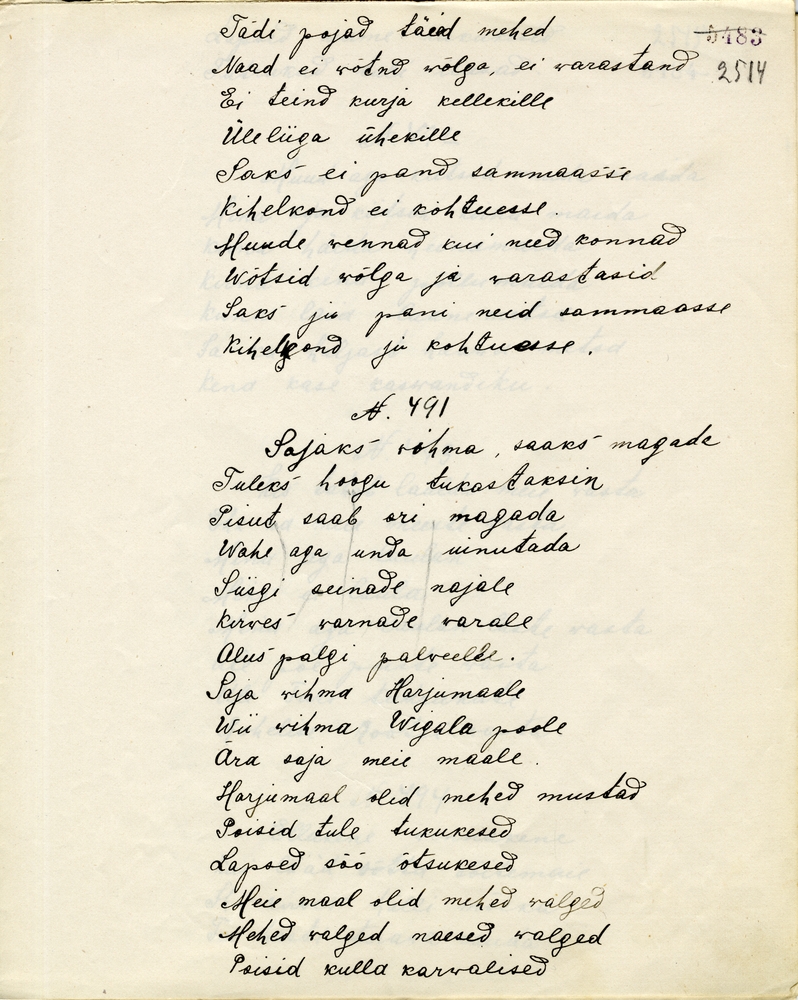 Tädi pojad täied mehed
5483
Naad ei wõtnd wõlga, ei warastand
2514
Ei teind kurja kellekille
Üleliiga ühekille
Saks ei pand sammaasse
Kihelkond ei kohtuesse.
Muude wennad kui need konnad
Wõtsid wõlga ja warastasid
Saks ju pani neid sammaasse
Kihelgond ju kohtuesse.
N. 491
Sajaks wihma, saaks magada
Tuleks hoogu tukastaksin
Pisut saab ori magada
Wahe aga unda uinutada
Siisgi seinade najale
Kirwes warnade warale
Alus palgi palweelle.
Saja wihma Harjumaale
Wii wihma Wigala poole
Ära saja meie maale.
Harjumaal olid mehed mustad
Poisid tule tukukesed
Lapsed söö õtsukesed
Meie maal olid mehed walged
Mehed walged naesed walged
Poisid kulla karwalised